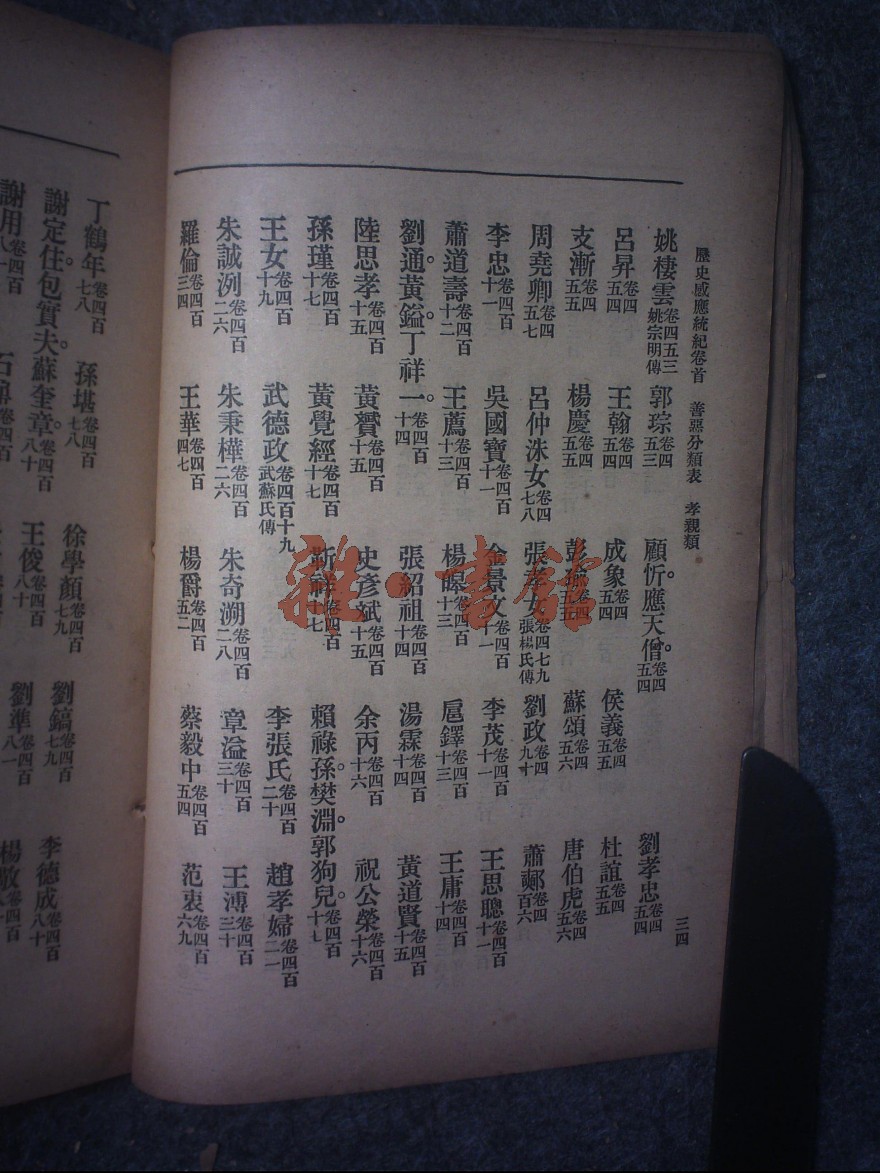 歷史感應統紀卷首　善惡分類表　孝親類　三四
姚棲雲卷四五三姚宗明傳　郭琮卷四五三　顧忻。應天僧。卷四五四　劉孝忠卷四五四
呂昇卷四五四　王翰卷四五四　成象卷四五四　侯義卷四五五　杜誼卷四五五
支漸卷四五五　楊慶卷四五五　彭　卷四五五　蘇頌卷四五六　唐伯虎卷四五六
周堯卿卷四五七　呂仲洙女卷四七八　張孝女卷四七九張楊氏傳　劉政卷四九十　蕭　卷四百六
李忠卷四百十一　吳國寶卷四百十一　金景文卷四百十一　李茂卷四百十一　王思聰卷四百十一
蕭道壽卷四百十二　王薦卷四百十三　楊皞卷四百十三　扈鐸卷四百十三　王庸卷四百十四
劉通。黃鎰。丁祥一。卷四百十四　張紹祖卷四百十四　湯霖卷四百十四　黃道賢卷四百十五
陸思孝卷四百十五　黃贇卷四百十五　史彥斌卷四百十五　余丙卷四百十六　祝公榮卷四百十六
孫瑾卷四百十七　黃覺經卷四百十七　靳祥卷四百十七　賴祿孫。樊淵。郭狗兒。卷四百十七
王女卷四百十九　武德政卷四百十九武蘇氏傳　李張氏卷四百二十　趙孝婦卷四百二一
朱誠洌卷四百二六　朱秉樺卷四百二六　朱奇溯卷四百二八　章溢卷四百三十　王溥卷四百三十
羅倫卷四百三四　王華卷四百四七　楊爵卷四百五二　蔡毅中卷四百五四　范衷卷四百六九
丁鶴年卷四百七八　孫堪卷四百七八　徐學顏卷四百七九　劉鎬卷四百七九　李德成卷四百八十
謝定住。包實夫。蘇奎章。卷四百八十　王俊卷四百八十　劉準卷四百八一　楊敬卷四百
謝用卷四百八一　石鼐卷四百